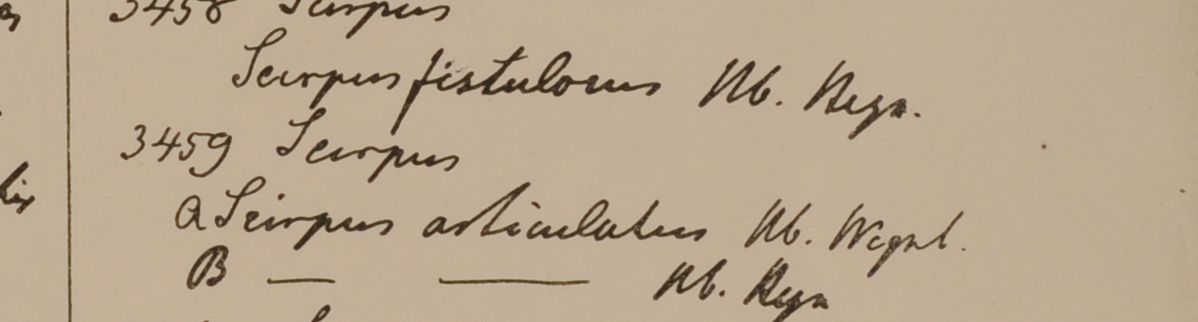 3458 Scirpus
Scirpus fistulosus Hb. Heyn.
3459 Scirpus
a Scirpus articulatus Hb. Wight.
B — — Hb. Heyn